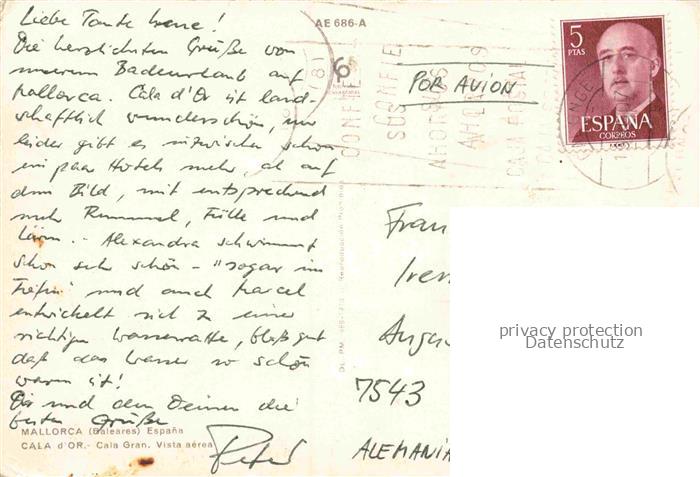 Liebe Tante Irene!
Die herzlichsten Grüße von
unserem Badeurlaub auf
Mallorca. Cala d'Or ist land-
schaftlich wunderschön, nur
leider gibt es inzwischen schon
ein paar Hotels mehr, als auf
dem Bild, mit entsprechend
mehr Rummel, Fülle und
Lärm. - Alexandra schwimmt
schon sehr schön - "sogar im
Tiefen" und auch Marcel
entwickelt sich zu einer
richtigen Wasserratte, bloß gut
daß das Wasser so schön
warm ist!
Dir und den Deinen die
besten Grüße
Peter
MALLORCA (Baleares) España
CALA d'OR.- Cala Gran. Vista aérea
AE 686-A
POR AVION
CONFIE
SUS
AHORROS
5
PTAS
ESPAÑA
CORREOS
Frau
Iren
Augu
7543
ALEMANIA
privacy protection
Datenschutz